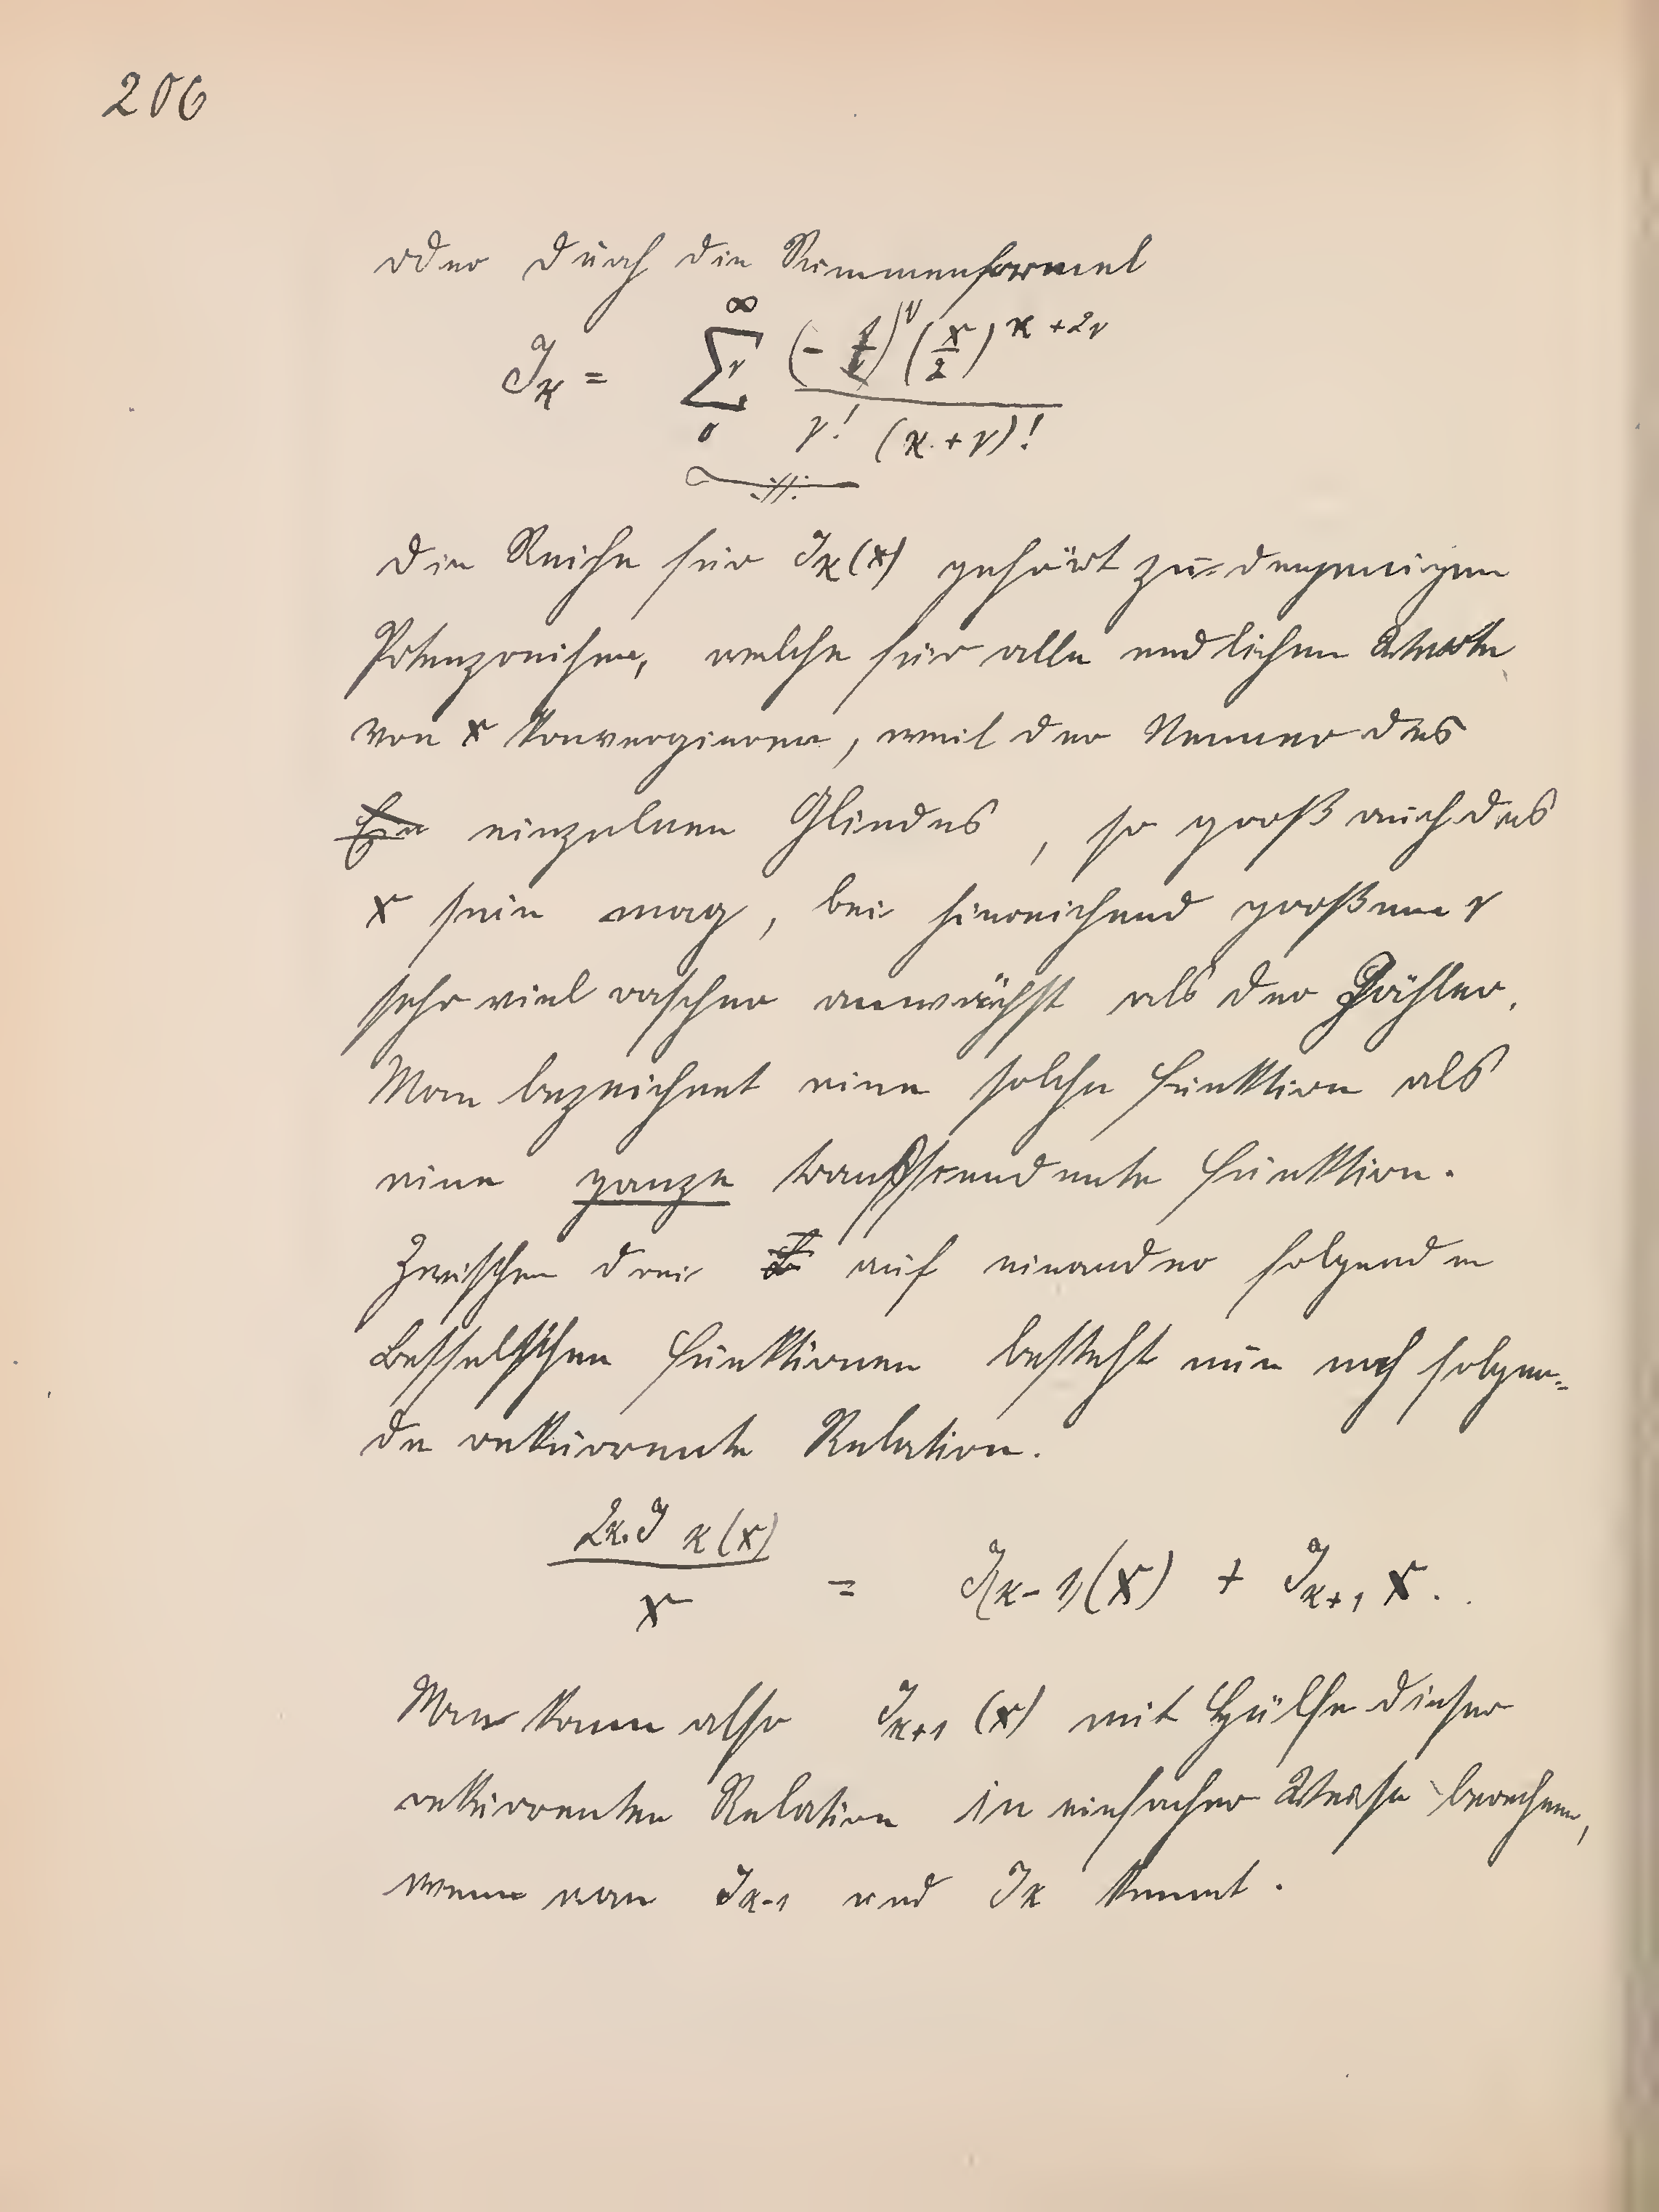 206
oder durch die Summenformel
J_κ = ∞ Σ_ν 0 (-1)^ν (x/2)^{κ+2ν} / ν! (κ+ν)!
Die Reihe für J_κ(x) gehört zu denjenigen
Potenzreihen, welche für alle endlichen Werte
von x konvergieren, weil der Nenner des
einzelnen Gliedes, so groß auch das
x sein mag, bei hinreichend großem ν
sehr viel rascher anwächst als der Zähler.
Man bezeichnet eine solche Funktion als
eine ganze transscendente Funktion.
Zwischen drei auf einander folgenden
Besselschen Funktionen besteht nun noch folgen=
de rekurrente Relation.
2κ.J κ(x) / x = J(κ-1)(x) + J_{κ+1} x.
Man kann also J_{κ+1} (x) mit Hülfe dieser
rekurrenten Relation in einfacher Weise berechnen,
wenn man J_{κ-1} und J_κ kennt.